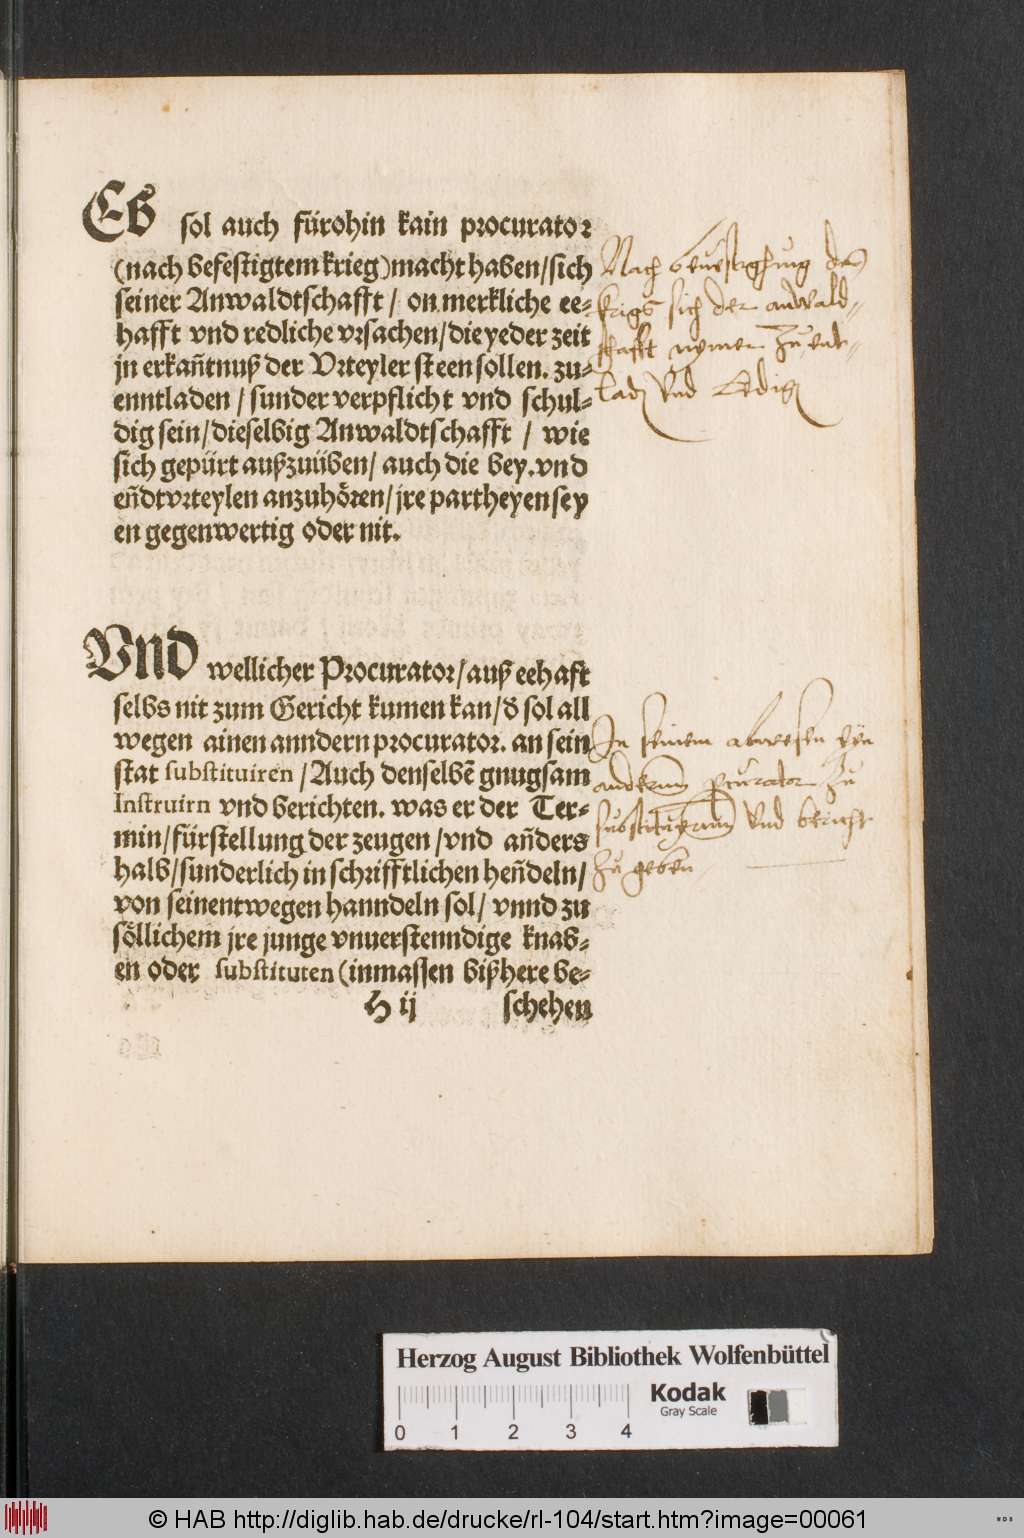 Es sol auch fürohin kain procurator
(nach befestigtem krieg) macht haben/sich
seiner Anwaldtschafft/ on merkliche ee-
hafft vnd redliche vrsachen/die yeder zeit
jn erkañtnuß der Vrteyler steen sollen. zu-
enntladen/sunder verpflicht vnd schul-
dig sein/dieselbig Anwaldtschafft / wie
sich gepürt außzuüben/ auch die bey. vnd
eñdtvrteylen anzuhören/jre partheyen sey
en gegenwertig oder nit.
Nach beuestighung des
krigs sich der anwald-
schafft nymer zu ent-
laden Vnd Ledig
Vnd wellicher Procurator/auß eehaft
selbs nit zum Gericht kumen kan/d̕ sol all
wegen ainen anndern procurator. an sein
stat substituiren /Auch denselbẽ gnugsam
Instruirn vnd berichten. was er der Ter-
min/fürstellung der zeugen/vnd añders
halb/sunderlich in schrifftlichen heñdeln/
von seinentwegen hanndeln sol/ vnnd zu
söllichem jre junge vnuerstenndige knab-
en oder substituten (inmassen bißhere be-
H ij schehen
In seinem abwesen eyn
anderm procurator zu
substituyrnn Vnd bericht
zu geben
Herzog August Bibliothek Wolfenbüttel
Kodak
Gray Scale
0 1 2 3 4
© HAB http://diglib.hab.de/drucke/rl-104/start.htm?image=00061